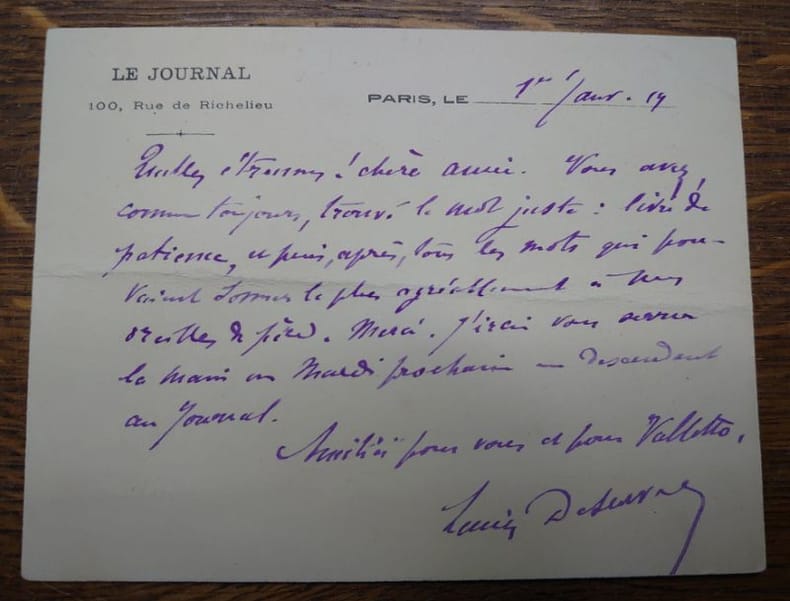 LE JOURNAL
100, Rue de Richelieu
PARIS, LE 1er Janv. 14
Quelles étrennes ! chère amie. Vous avez,
comme toujours, trouvé le mot juste : livre de
patience, et puis, après, tous les mots qui pou-
vaient sonner le plus agréablement à mes
oreilles de père. Merci. J'irai vous serrer
la main un Mardi prochain en descendant
au Journal.
Amitiés pour vous et pour Vallette.
Lucien Descaves